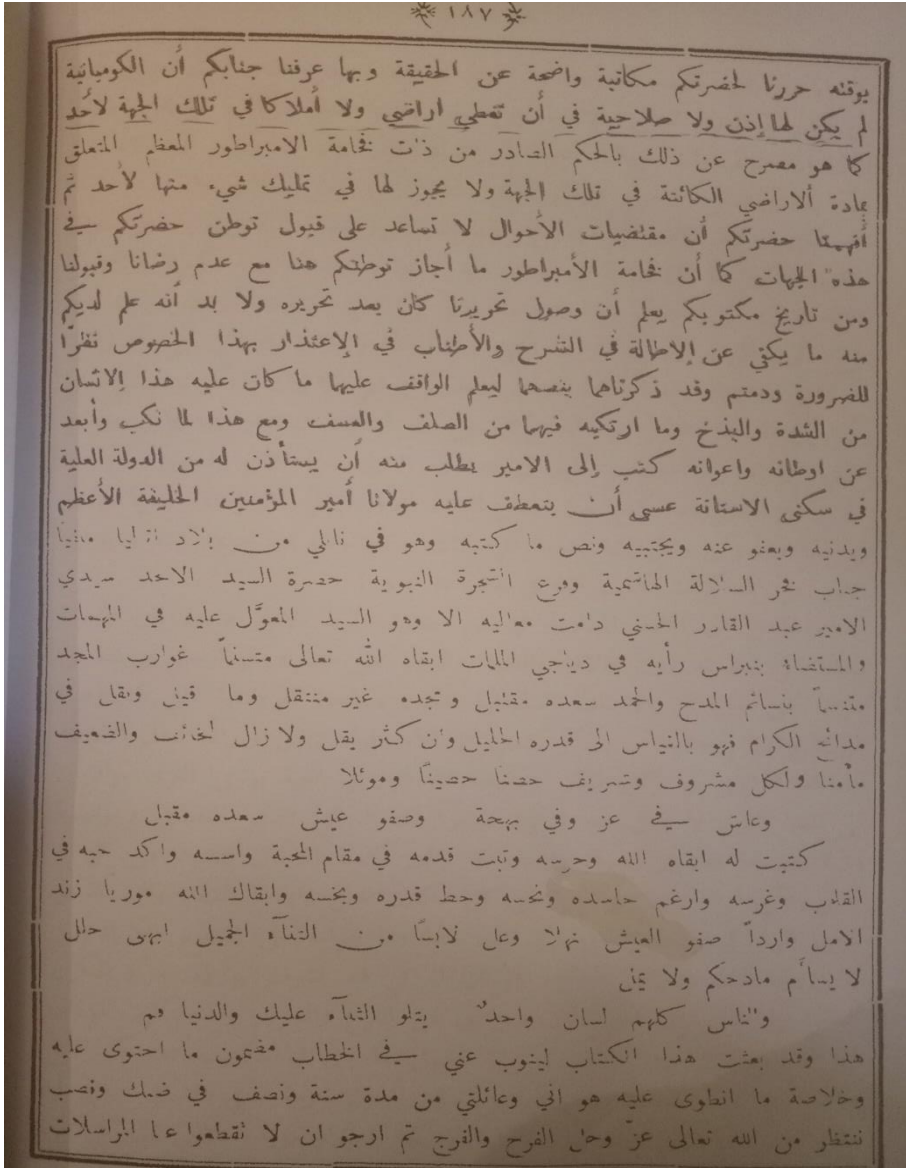 ١٨٧
بوقته حررنا لحضرتكم مكاتبة واضحة عن الحقيقة وبها عرفنا جنابكم أن الكومبانية
لم يكن لها إذن ولا صلاحية في أن تعطي اراضي ولا أملاكا في تلك الجهة لأحد
كما هو مصرح عن ذلك بالحكم الصادر من ذات فخامة الامبراطور المعظم المتعلق
بمادة ألاراضي الكائنة في تلك الجهة ولا يجوز لها في تمليك شيء منها لأحد ثم
أفهمنا حضرتكم أن مقتضيات الأحوال لا تساعد على قبول توطن حضرتكم في
هذه الجهات كما أن فخامة الأمبراطور ما أجاز توطنكم هنا مع عدم رضانا وقبولنا
ومن تاريخ مكتوبكم يعلم أن وصول تحريرنا كان بعد تحريره ولا بد أنه علم لديكم
منه ما يكفي عن الاطالة في الشرح والأطناب في الإعتذار بهذا الخصوص نظرًا
للضرورة ودمتم وقد ذكرناهما بنصهما ليعلم الواقف عليهما ما كان عليه هذا الانسان
من الشدة والبذخ وما ارتكبه فيهما من الصلف والعسف ومع هذا لما نكب وأبعد
عن اوطانه واعوانه كتب إلى الامير يطلب منه أن يستأذن له من الدولة العلية
في سكنى الاستانة عسى أن يتعطف عليه مولانا أمير المؤمنين الخليفة الأعظم
ويدنيه ويعفو عنه ويجتبيه ونص ما كتبه وهو في نابلي من بلاد ايتاليا منفيا
جناب فخر السلالة الهاشمية وفرع الشجرة النبوية حضرة السيد الاحد سيدي
الامير عبد القادر الحسني دامت معاليه الا وهو السيد المعوَّل عليه في المهمات
والمستضاء بنبراس رأيه في دياجي الملمات ابقاه الله تعالى متسنماً غوارب المجد
متنسماً بنسائم المدح والحمد سعده مقتبل ومجده غير منتقل وما قيل ونقل في
مدائح الكرام فهو بالقياس الى قدره الجليل وان كثر يقل ولا زال للخائف والضعيف
مأمناً ولكل مشروف وشريف حصنا حصيناً وموئلا
وعاش في عز وفي بهجة وصفو عيش سعده مقبل
كتبت له ابقاه الله وحرسه وثبت قدمه في مقام المحبة واسسه واكد حبه في
القلوب وغرسه وارغم حاسده ونحسه وحط قدره وبخسه وابقاك الله موريا زند
الامل وارداً صفو العيش نهلا وعل لابساً من الثنآء الجميل ابهى حلل
لا يسأم مادحكم ولا يمل
والناس كلهم لسان واحدٌ يتلو الثنآء عليك والدنيا فم
هذا وقد بعثت هذا الكتاب لينوب عني في الخطاب مضمون ما احتوى عليه
وخلاصة ما انطوى عليه هو اني وعائلتي من مدة سنة ونصف في ضنك ونصب
ننتظر من الله تعالى عزّ وجل الفرح والفرج ثم ارجو ان لا تقطعوا عنا المراسلات